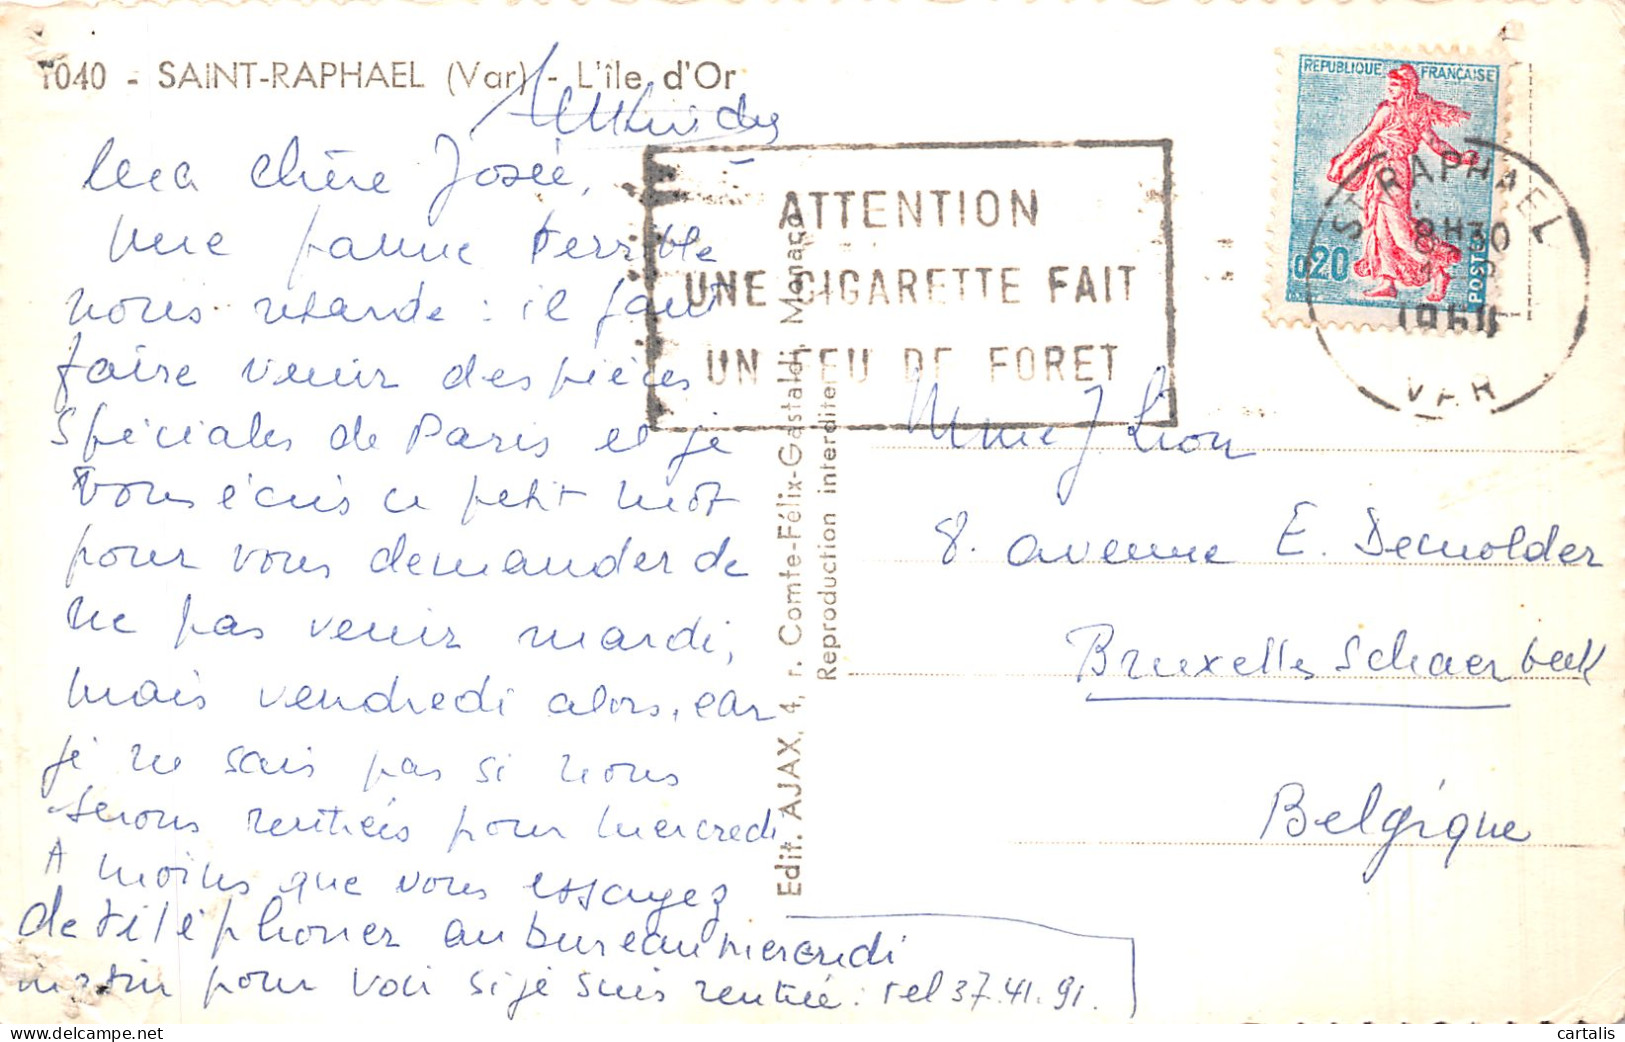 1040 - SAINT-RAPHAEL (Var) - L'île d'Or
Ma chère Josée,
Une panne terrible
nous retarde : il faut
faire venir des pièces
spéciales de Paris et je
vous écris ce petit mot
pour vous demander de
ne pas venir mardi,
mais vendredi alors, car
je ne sais pas si nous
serons rentrées pour mercredi
A moins que vous essayez
de téléphoner au bureau mercredi
matin pour voir si je suis rentrée : tel 37.41.91.
Edit. AJAX, 4, r. Comte-Félix-Gastaldi, Monaco
Reproduction interdite
ATTENTION
UNE CIGARETTE FAIT
UN FEU DE FORET
REPUBLIQUE FRANÇAISE
0,20
POSTES
ST RAPHAEL
8H30
1960
VAR
Mme J Lion
8. avenue E. Demolder
Bruxelles Schaerbeek
Belgique
cartalis